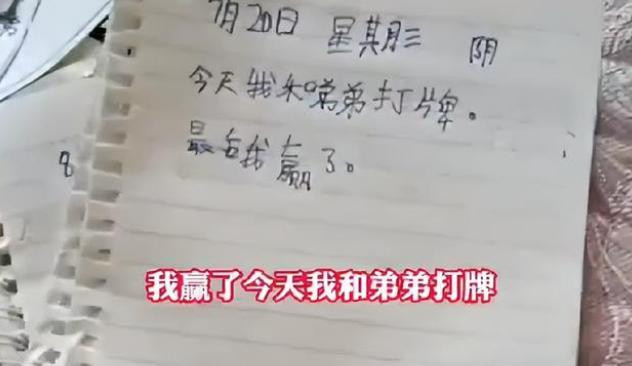 7月20日 星期三 阴
今天我和啼弟打牌。
最后我赢了。
8
我赢了今天我和弟弟打牌